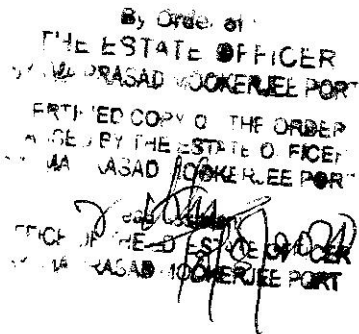 By Order of
THE ESTATE OFFICER
PRASAD MOOKERJEE PORT
CERTIFIED COPY OF THE ORDER
PASSED BY THE ESTATE OFFICER
MA PRASAD MOOKERJEE PORT
OFFICE OF THE LD ESTATE OFFICER
MA PRASAD MOOKERJEE PORT